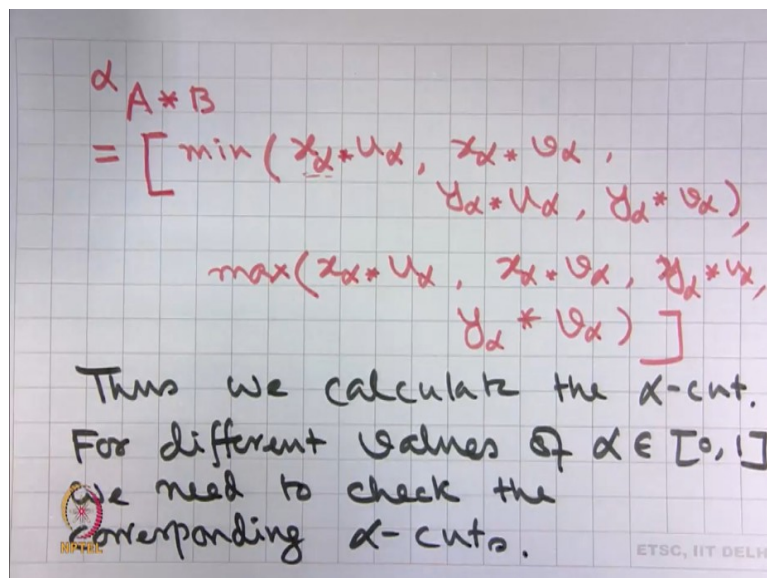 α A * B
= [ min ( xα * uα , xα * vα ,
yα * uα , yα * vα ) ,
max( xα * uα , xα * vα , yα * uα ,
yα * vα ) ]
Thus we calculate the α-cut.
For different values of α ∈ [0, 1]
we need to check the
corresponding α-cuts.
NPTEL
ETSC, IIT DELH